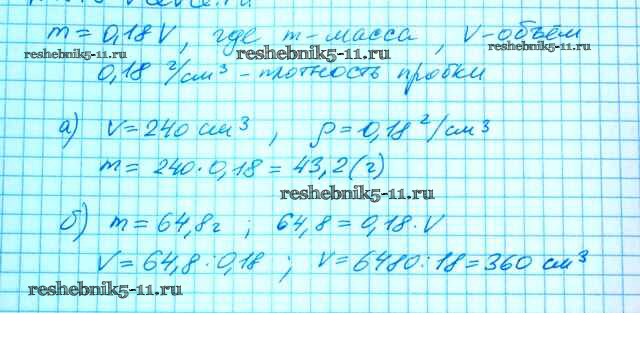 m = 0,18 V, где m - масса, V - объём
reshebnik5-11.ru
reshebnik5-11.ru
0,18 г/см³ - плотность пробки
а) V = 240 см³, ρ = 0,18 г/см³
m = 240 · 0,18 = 43,2 (г)
reshebnik5-11.ru
б) m = 64,8 г ; 64,8 = 0,18 · V
V = 64,8 : 0,18 ; V = 6480 : 18 = 360 см³
reshebnik5-11.ru